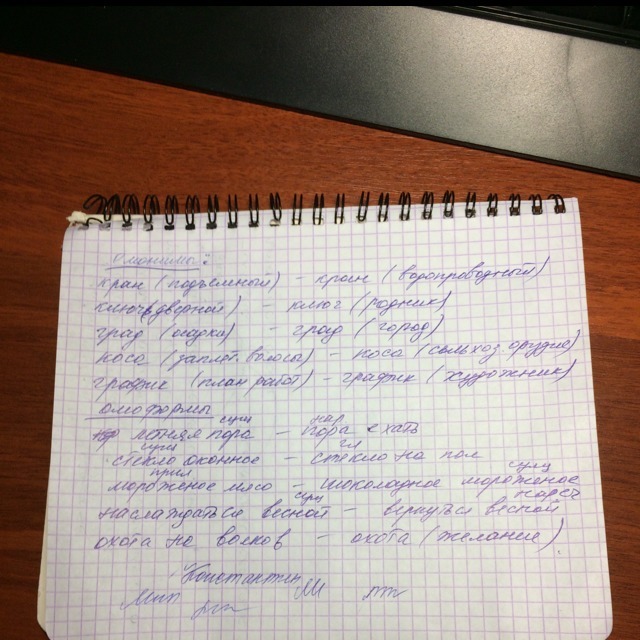 Омонимы:
кран (подъемный) – кран (водопроводный)
ключ (дверной) – ключ (родник)
град (осадки) – град (город)
коса (заплет. волосы) – коса (сельхоз. орудие)
график (план работ) – график (художник)
омоформы
сущ нар
летняя пора – пора ехать
сущ гл
стекло оконное – стекло на пол
прил сущ
мороженое мясо – шоколадное мороженое
сущ нареч
наслаждаться весной – вернуться весной
охота на волков – охота (желание)
Константин